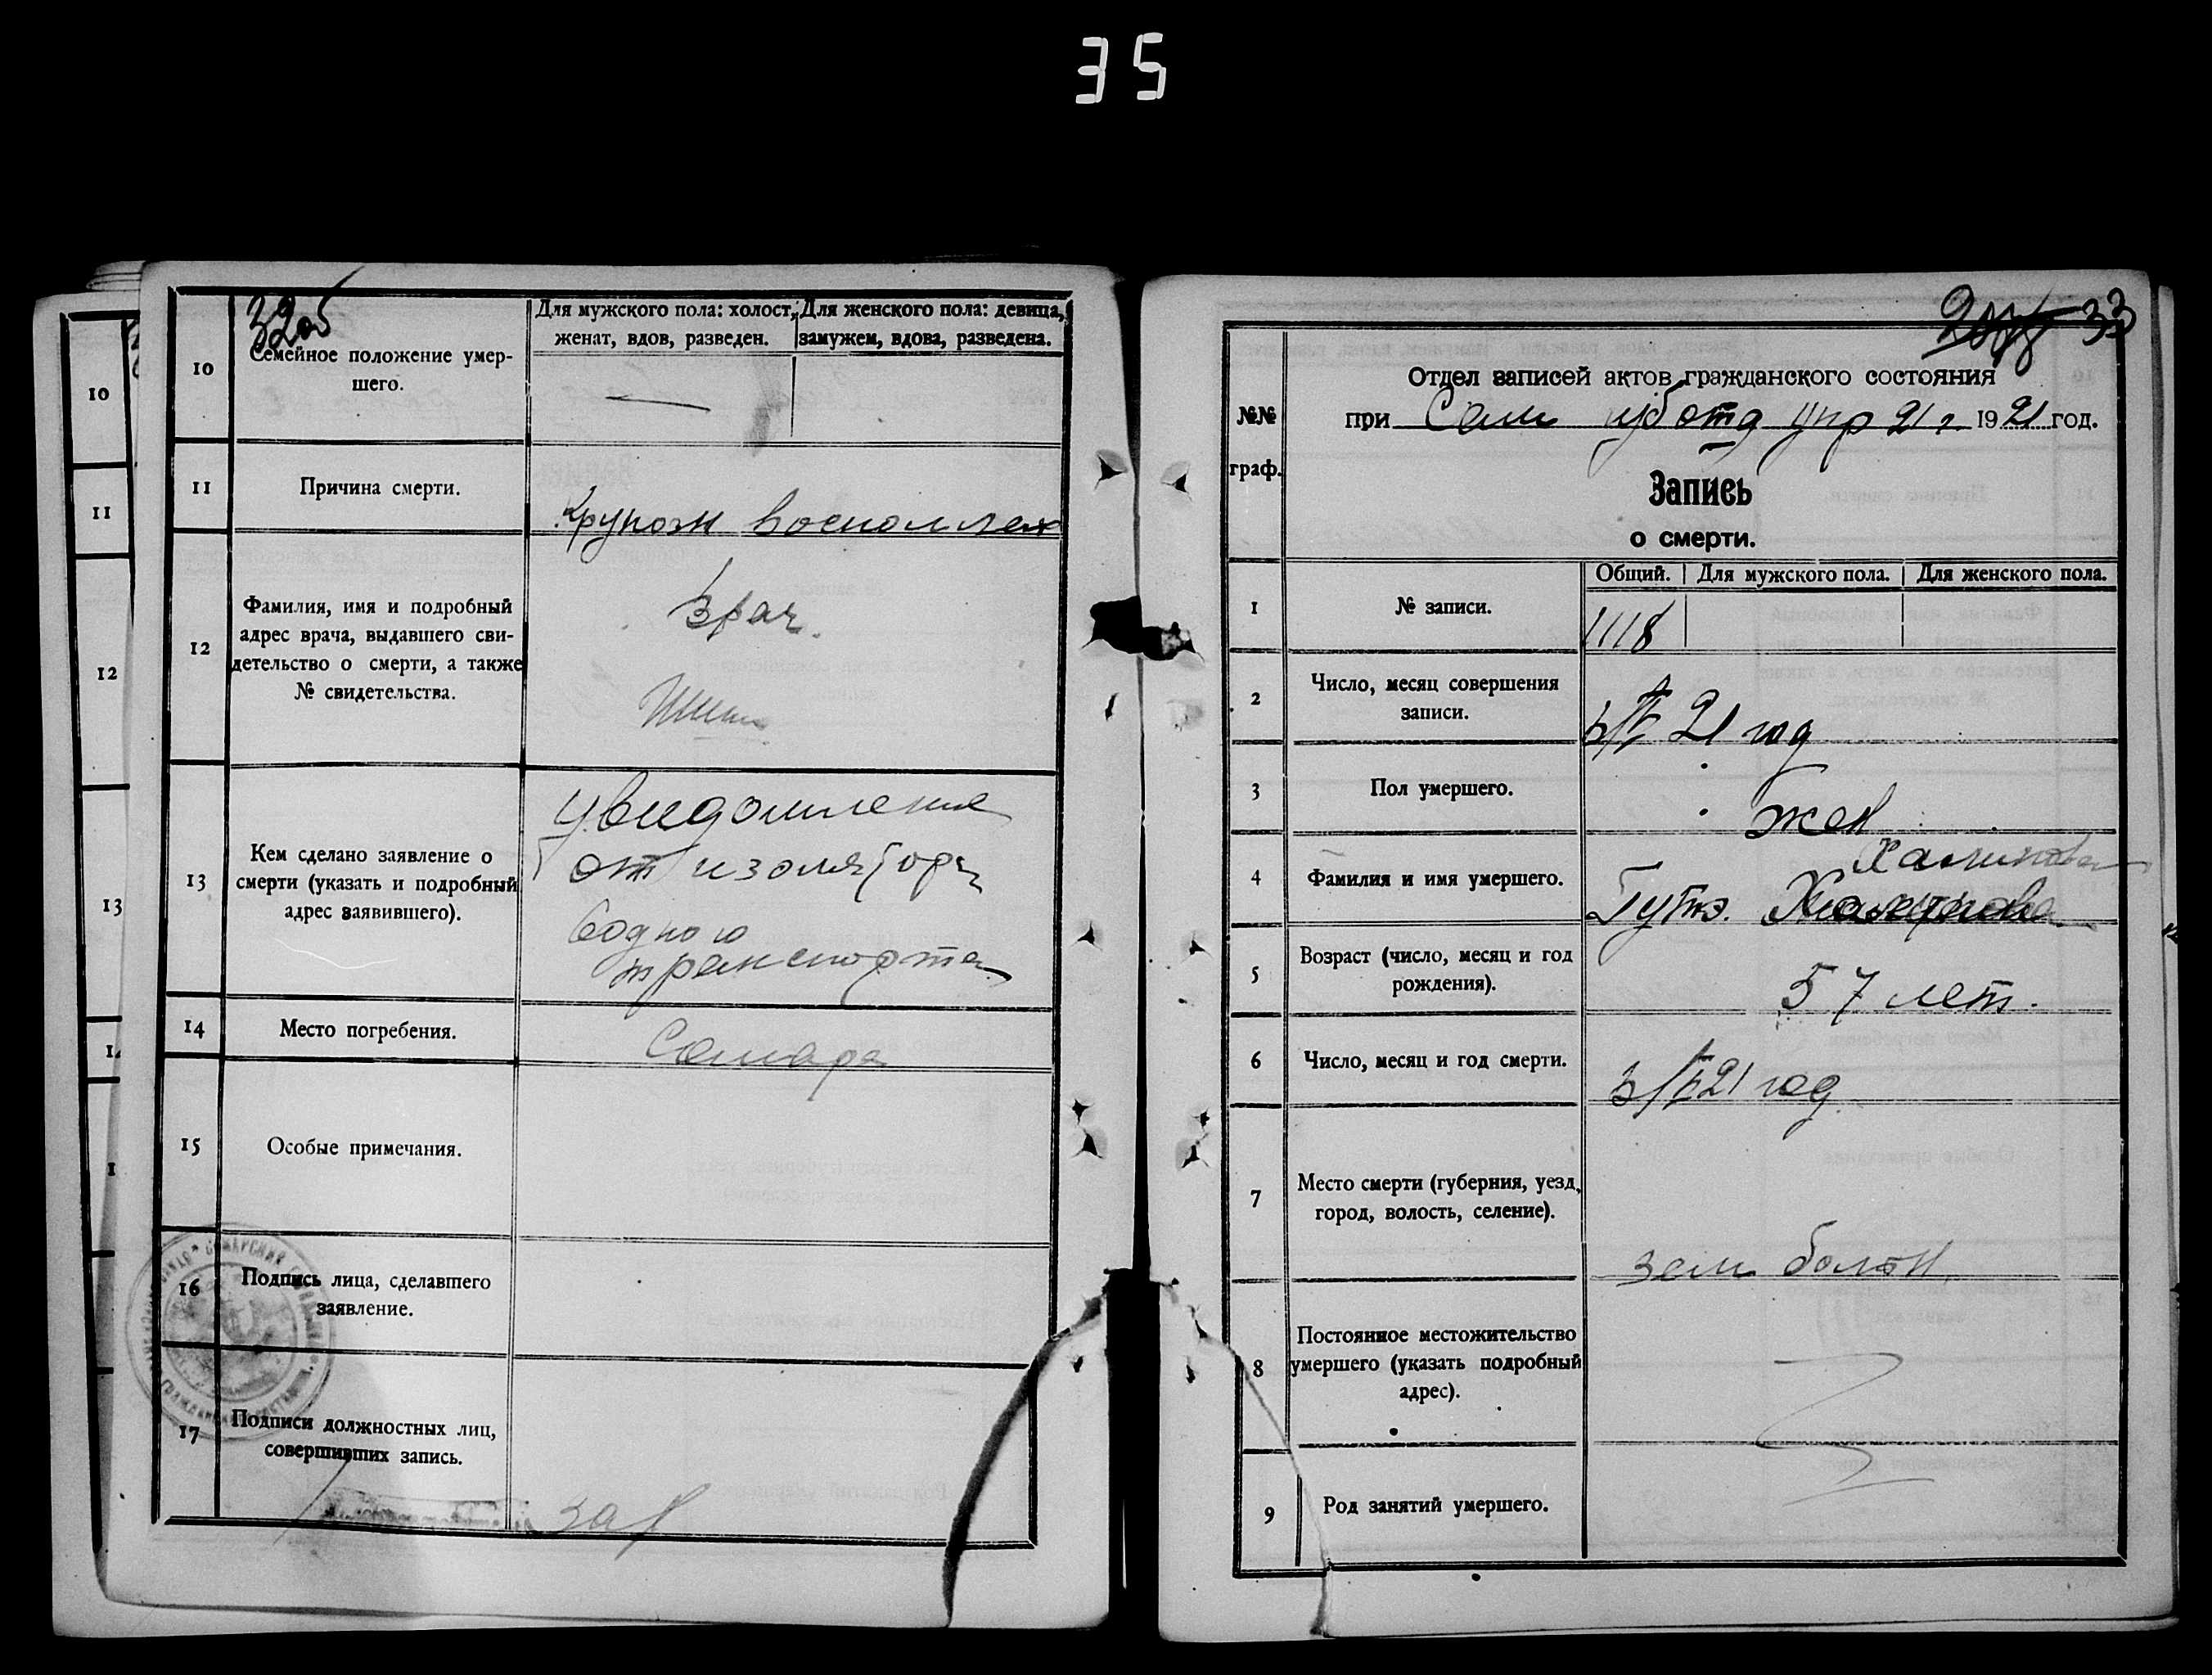 35
32об
10
Семейное положение умер-
шего.
Для мужского пола: холост,
женат, вдов, разведен.
Для женского пола: девица,
замужем, вдова, разведена.
—
11
Причина смерти.
Крупозн воспол лех
12
Фамилия, имя и подробный
адрес врача, выдавшего сви-
детельство о смерти, а также
№ свидетельства.
Врач.
13
Кем сделано заявление о
смерти (указать и подробный
адрес заявившего).
Уведомление
от изолятора
водного
транспорта
14
Место погребения.
Самара
15
Особые примечания.
16
Подпись лица, сделавшего
заявление.
17
Подписи должностных лиц,
совершивших запись.
зав
10
11
12
13
33
№№
граф.
Отдел записей актов гражданского состояния
при Сам губ отд упр 21 г. 1921 год.
Запись
о смерти.
1
№ записи.
Общий. Для мужского пола. Для женского пола.
1118
2
Число, месяц совершения
записи.
21 год
3
Пол умершего.
жен
4
Фамилия и имя умершего.
Халикова
5
Возраст (число, месяц и год
рождения).
57 лет.
6
Число, месяц и год смерти.
21 год
7
Место смерти (губерния, уезд,
город, волость, селение).
зем больн.
8
Постоянное местожительство
умершего (указать подробный
адрес).
9
Род занятий умершего.